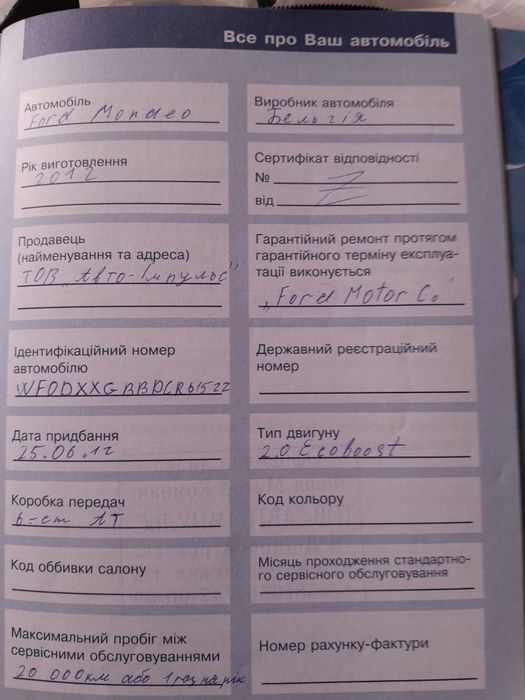 Все про Ваш автомобіль
Автомобіль
Ford Mondeo
Виробник автомобіля
Бельгія
Рік виготовлення
2012
Сертифікат відповідності
№
від
Продавець
(найменування та адреса)
ТОВ "Авто-Імпульс"
Гарантійний ремонт протягом
гарантійного терміну експлуа-
тації виконується
"Ford Motor Co"
Ідентифікаційний номер
автомобілю
WF0DXXGBBDCR61522
Державний реєстраційний
номер
Дата придбання
25.06.12
Тип двигуну
2.0 Ecoboost
Коробка передач
6-ст АТ
Код кольору
Код оббивки салону
Місяць проходження стандартно-
го сервісного обслуговування
Максимальний пробіг між
сервісними обслуговуваннями
20 000км або 1 раз на рік
Номер рахунку-фактури